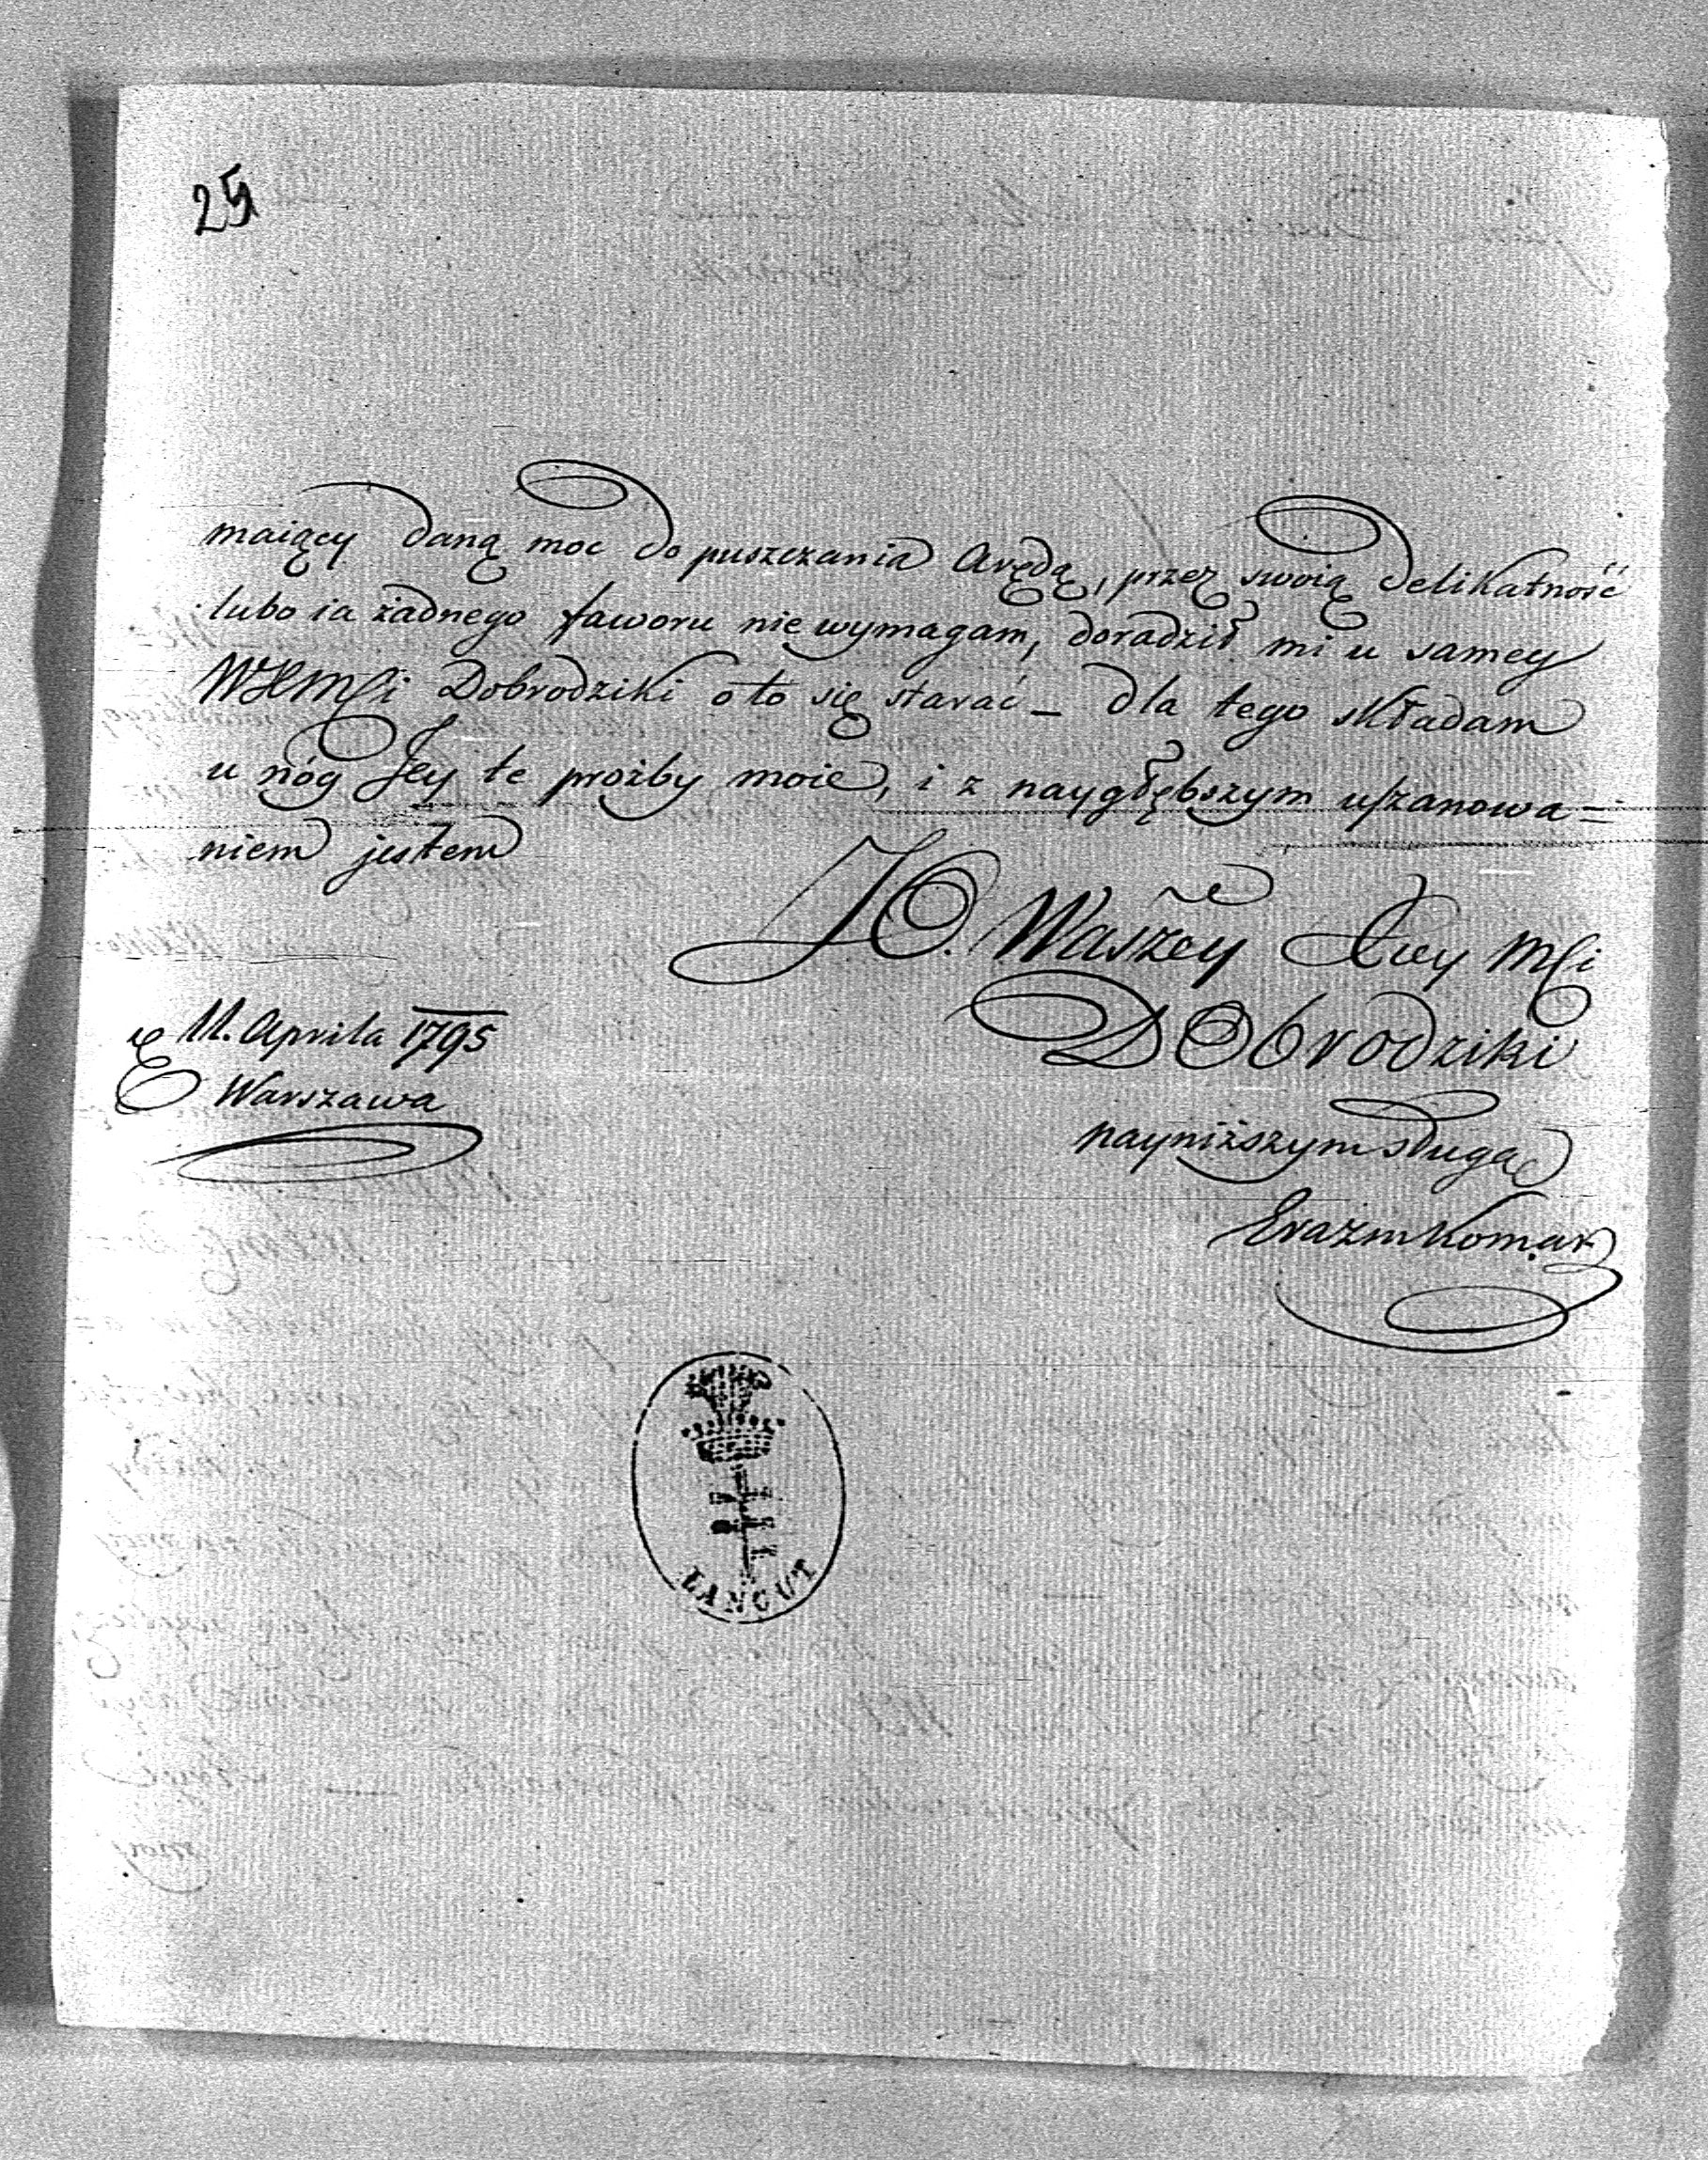 25
maiący daną moc do puszczania Arędą, przez swoią delikatność
lubo ia żadnego faworu nie wymagam, doradził mi u samey
WXMśi Dobrodziki o to się starać _ dla tego składam
u nóg Jey te proźby moie, i z naygłębszym uszanowa=
niem jestem
JO. Waszey Xcey Mśi
DObrodziki
11. Aprila 1795
Warszawa
nayniższym sługą
Erazm Komar
ŁANCUT